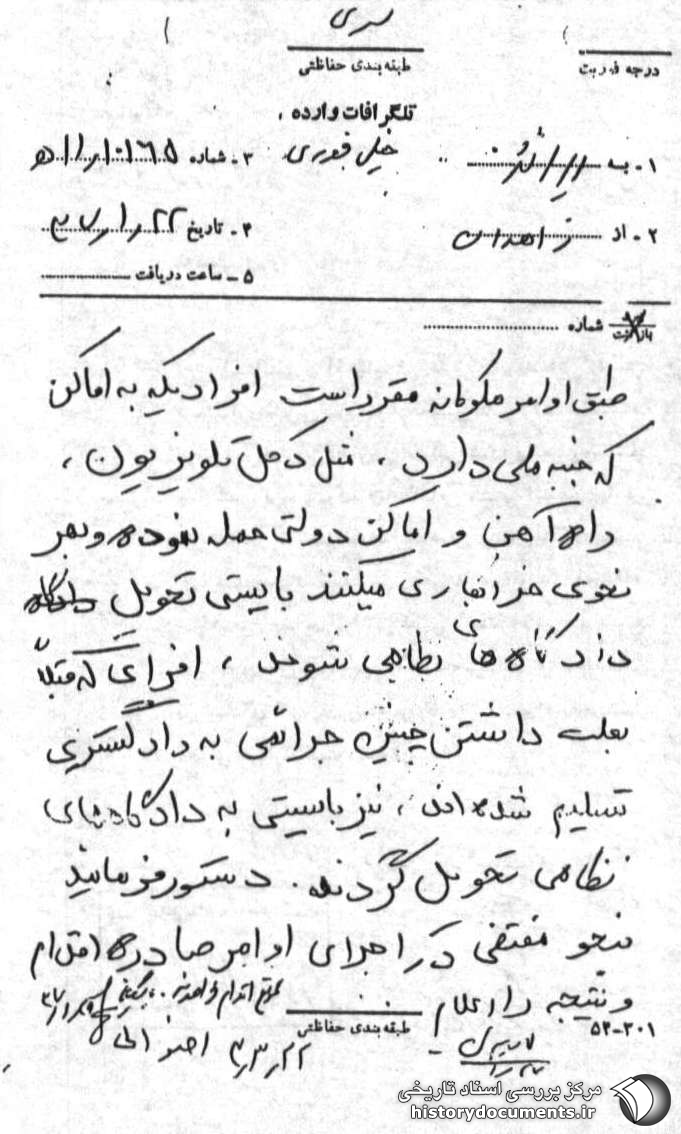 سری
درجه فوریت
طبقه‌بندی حفاظتی
تلگرافات وارده
خیلی فوری
۱ـ به
۲ـ از زاهدان
۳ـ شماره ۱۰۱۶۵
۴ـ تاریخ
۵ ـ ساعت دریافت
شماره
طبق اوامر ملوکانه مقرر است افرادیکه به اماکن
که جنبه ملی دارد ، مثل دکل تلویزیون ،
راه آهن و اماکن دولتی حمله نموده و بهر
نحوی خرابکاری میکنند بایستی تحویل
دادگاه های نظامی شوند ، افرادی که قبلاً
بعلت داشتن چنین جرائمی به دادگستری
تسلیم شده اند ، نیز بایستی به دادگاههای
نظامی تحویل گردند . دستور فرمائید
بنحو مقتضی در اجرای اوامر صادره اقدام
و نتیجه را اعلام
طبقه‌بندی حفاظتی
۵۴-۳۰۱
مرکز بررسی اسناد تاریخی
historydocuments.ir